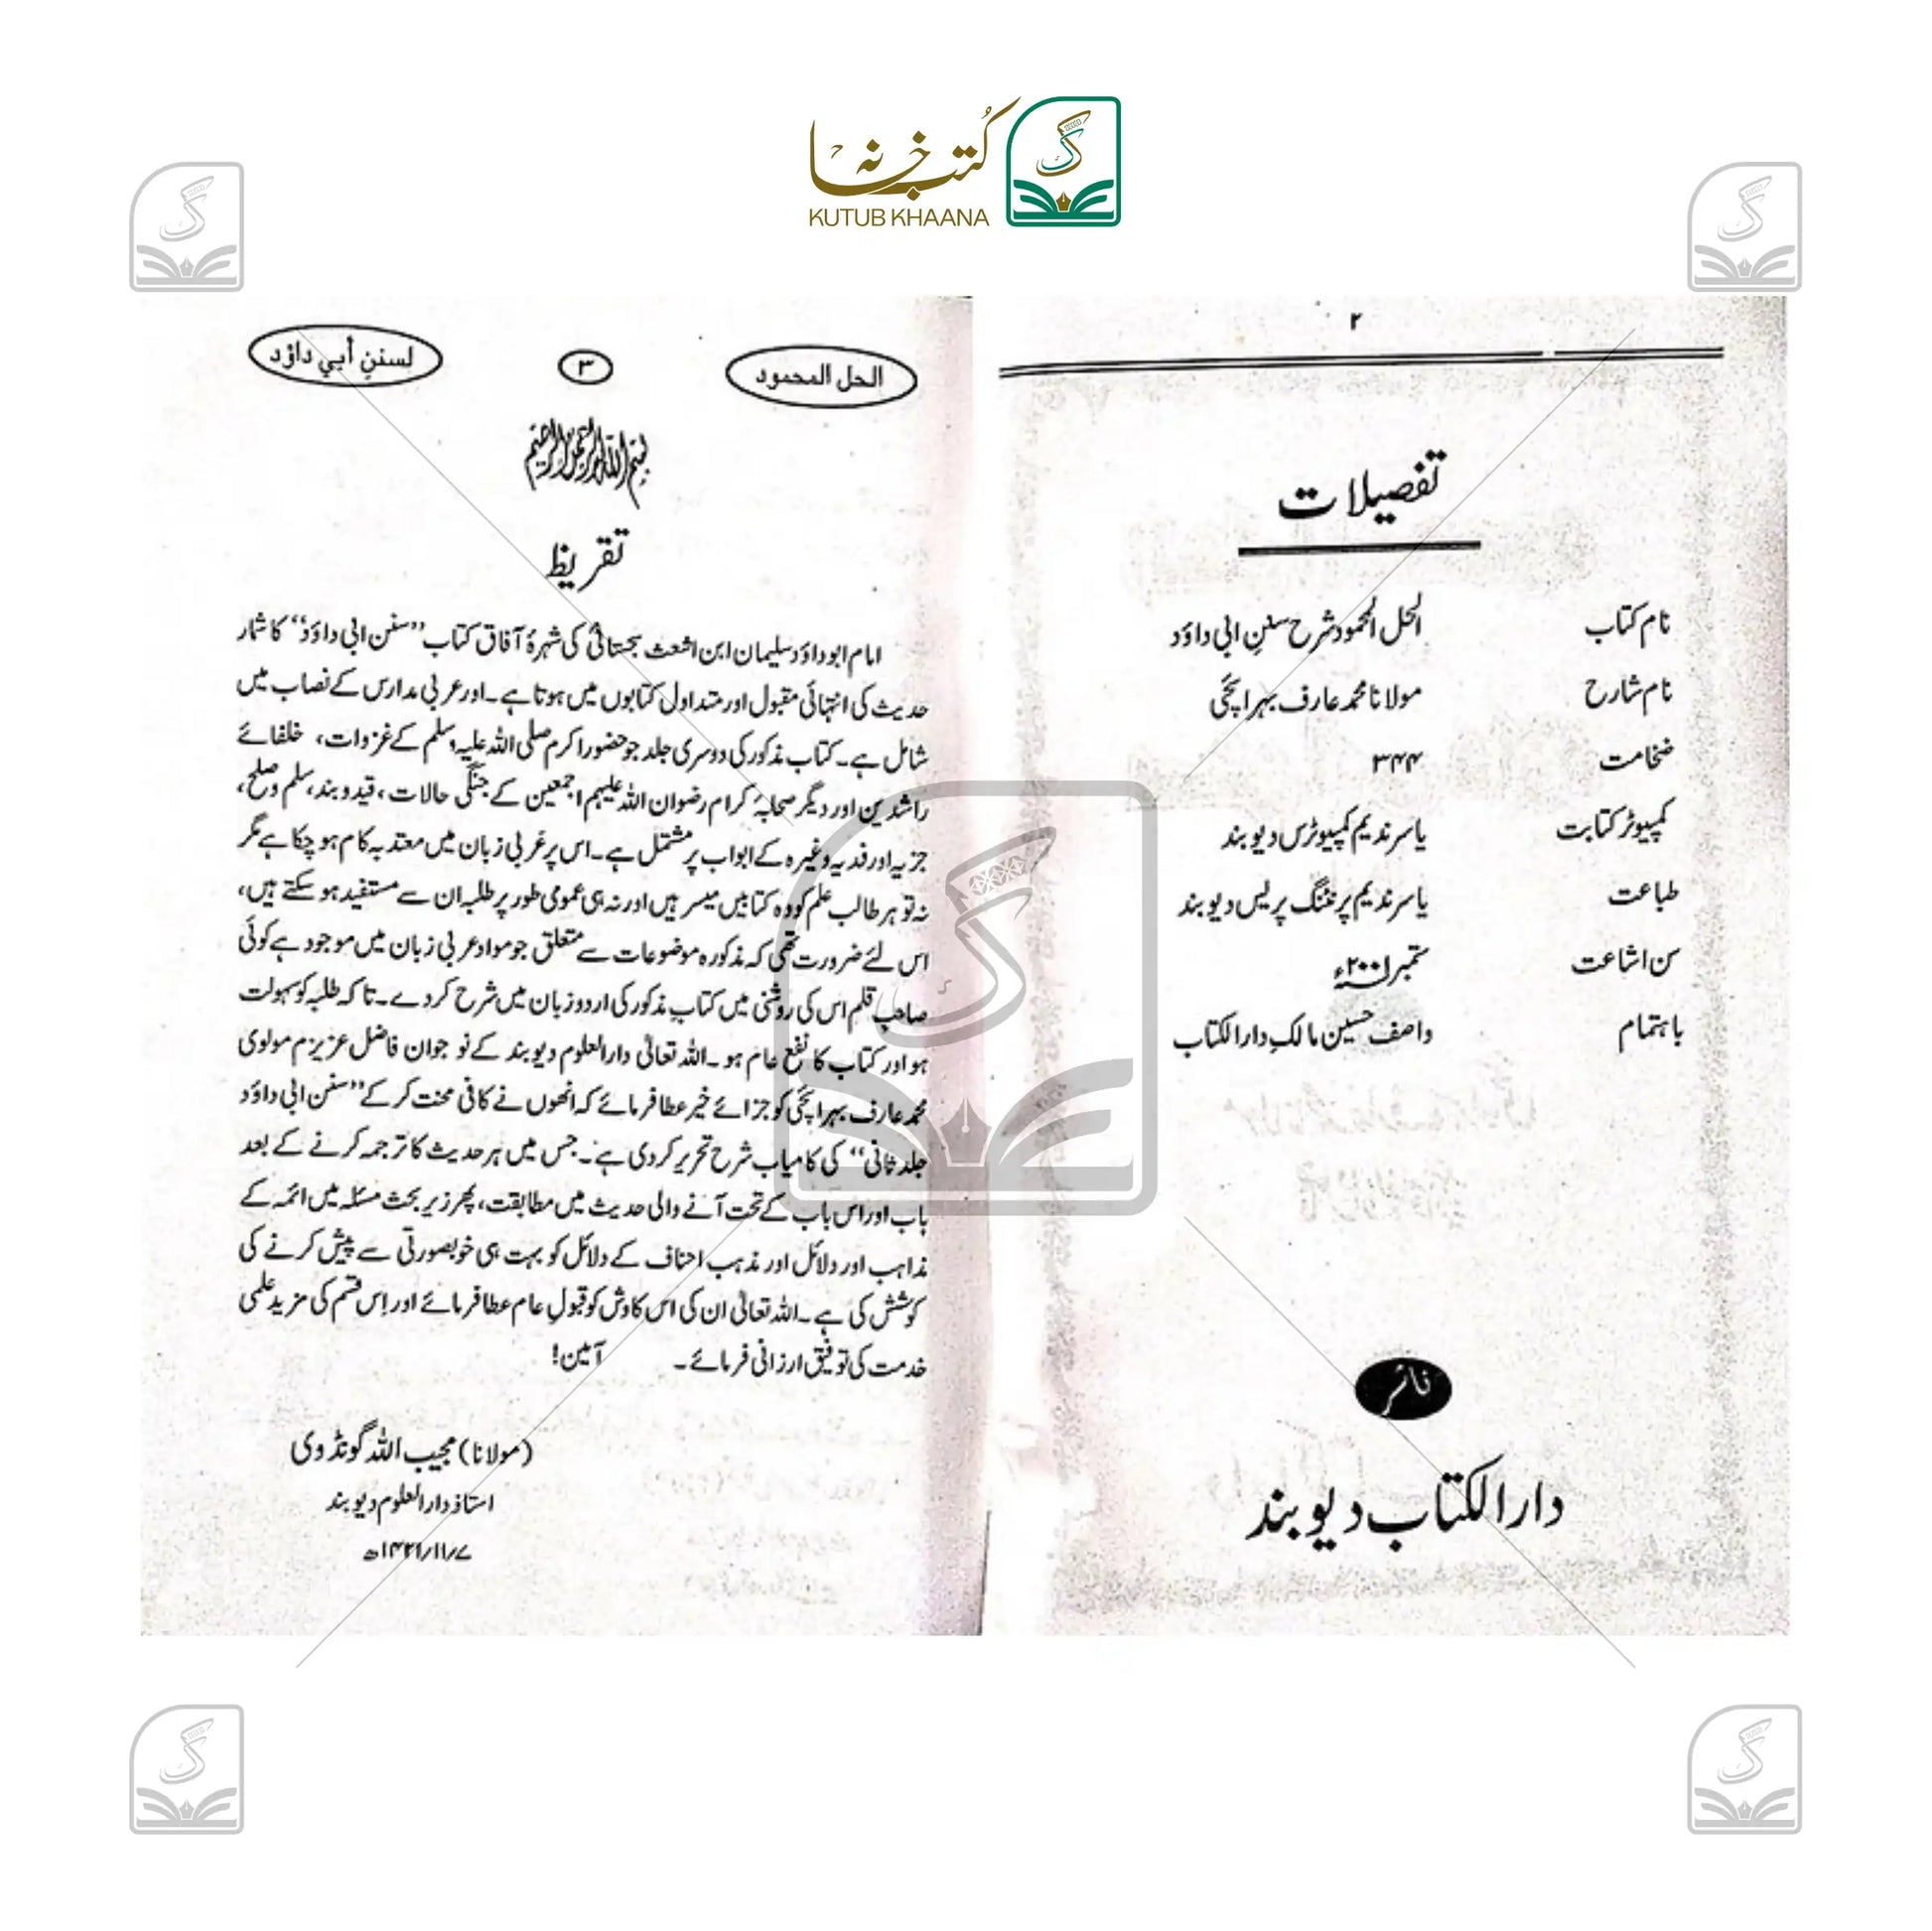 کتب خانہ
KUTUB KHAANA
۲
تفصیلات
نام کتاب الحل المحمود شرح سنن ابی داؤد
نام شارح مولانا محمد عارف بہرائچی
ضخامت ۳۴۴
کمپیوٹر کتابت یاسر ندیم کمپیوٹرس دیوبند
طباعت یاسر ندیم پرنٹنگ پریس دیوبند
سن اشاعت ستمبر ۲۰۰۱ء
باہتمام واصف حسین مالک دار الکتاب
ناشر
دار الکتاب دیوبند
الحل المحمود ۳ لسنن أبي داؤد
بسم اللہ الرحمن الرحیم
تقریظ
امام ابو داؤد سلیمان ابن اشعث سجستانیؒ کی شہرۂ آفاق کتاب ”سنن ابی داؤد“ کا شمار
حدیث کی انتہائی مقبول اور متداول کتابوں میں ہوتا ہے۔ اور عربی مدارس کے نصاب میں
شامل ہے۔ کتاب مذکور کی دوسری جلد جو حضور اکرم صلی اللہ علیہ وسلم کے غزوات، خلفائے
راشدین اور دیگر صحابۂ کرام رضوان اللہ علیہم اجمعین کے جنگی حالات، قید و بند، سلم و صلح،
جزیہ اور فدیہ وغیرہ کے ابواب پر مشتمل ہے۔ اس پر عربی زبان میں معتد بہ کام ہو چکا ہے مگر
نہ تو ہر طالب علم کو وہ کتابیں میسر ہیں اور نہ ہی عمومی طور پر طلبہ ان سے مستفید ہو سکتے ہیں،
اس لئے ضرورت تھی کہ مذکورہ موضوعات سے متعلق جو مواد عربی زبان میں موجود ہے کوئی
صاحب قلم اس کی روشنی میں کتاب مذکور کی اردو زبان میں شرح کر دے۔ تاکہ طلبہ کو سہولت
ہو اور کتاب کا نفع عام ہو۔ اللہ تعالیٰ دار العلوم دیوبند کے نو جوان فاضل عزیزم مولوی
محمد عارف بہرائچی کو جزائے خیر عطا فرمائے کہ انھوں نے کافی محنت کر کے ”سنن ابی داؤد
جلد ثانی“ کی کامیاب شرح تحریر کر دی ہے۔ جس میں ہر حدیث کا ترجمہ کرنے کے بعد
باب اور اس باب کے تحت آنے والی حدیث میں مطابقت، پھر زیر بحث مسئلہ میں ائمہ کے
مذاہب اور دلائل اور مذہب احناف کے دلائل کو بہت ہی خوبصورتی سے پیش کرنے کی
کوشش کی ہے۔ اللہ تعالیٰ ان کی اس کاوش کو قبول عام عطا فرمائے اور اِس قسم کی مزید علمی
خدمت کی توفیق ارزانی فرمائے۔ آمین!
(مولانا) مجیب اللہ گونڈوی
استاذ دار العلوم دیوبند
۷/۱۱/۱۴۲۱ھ